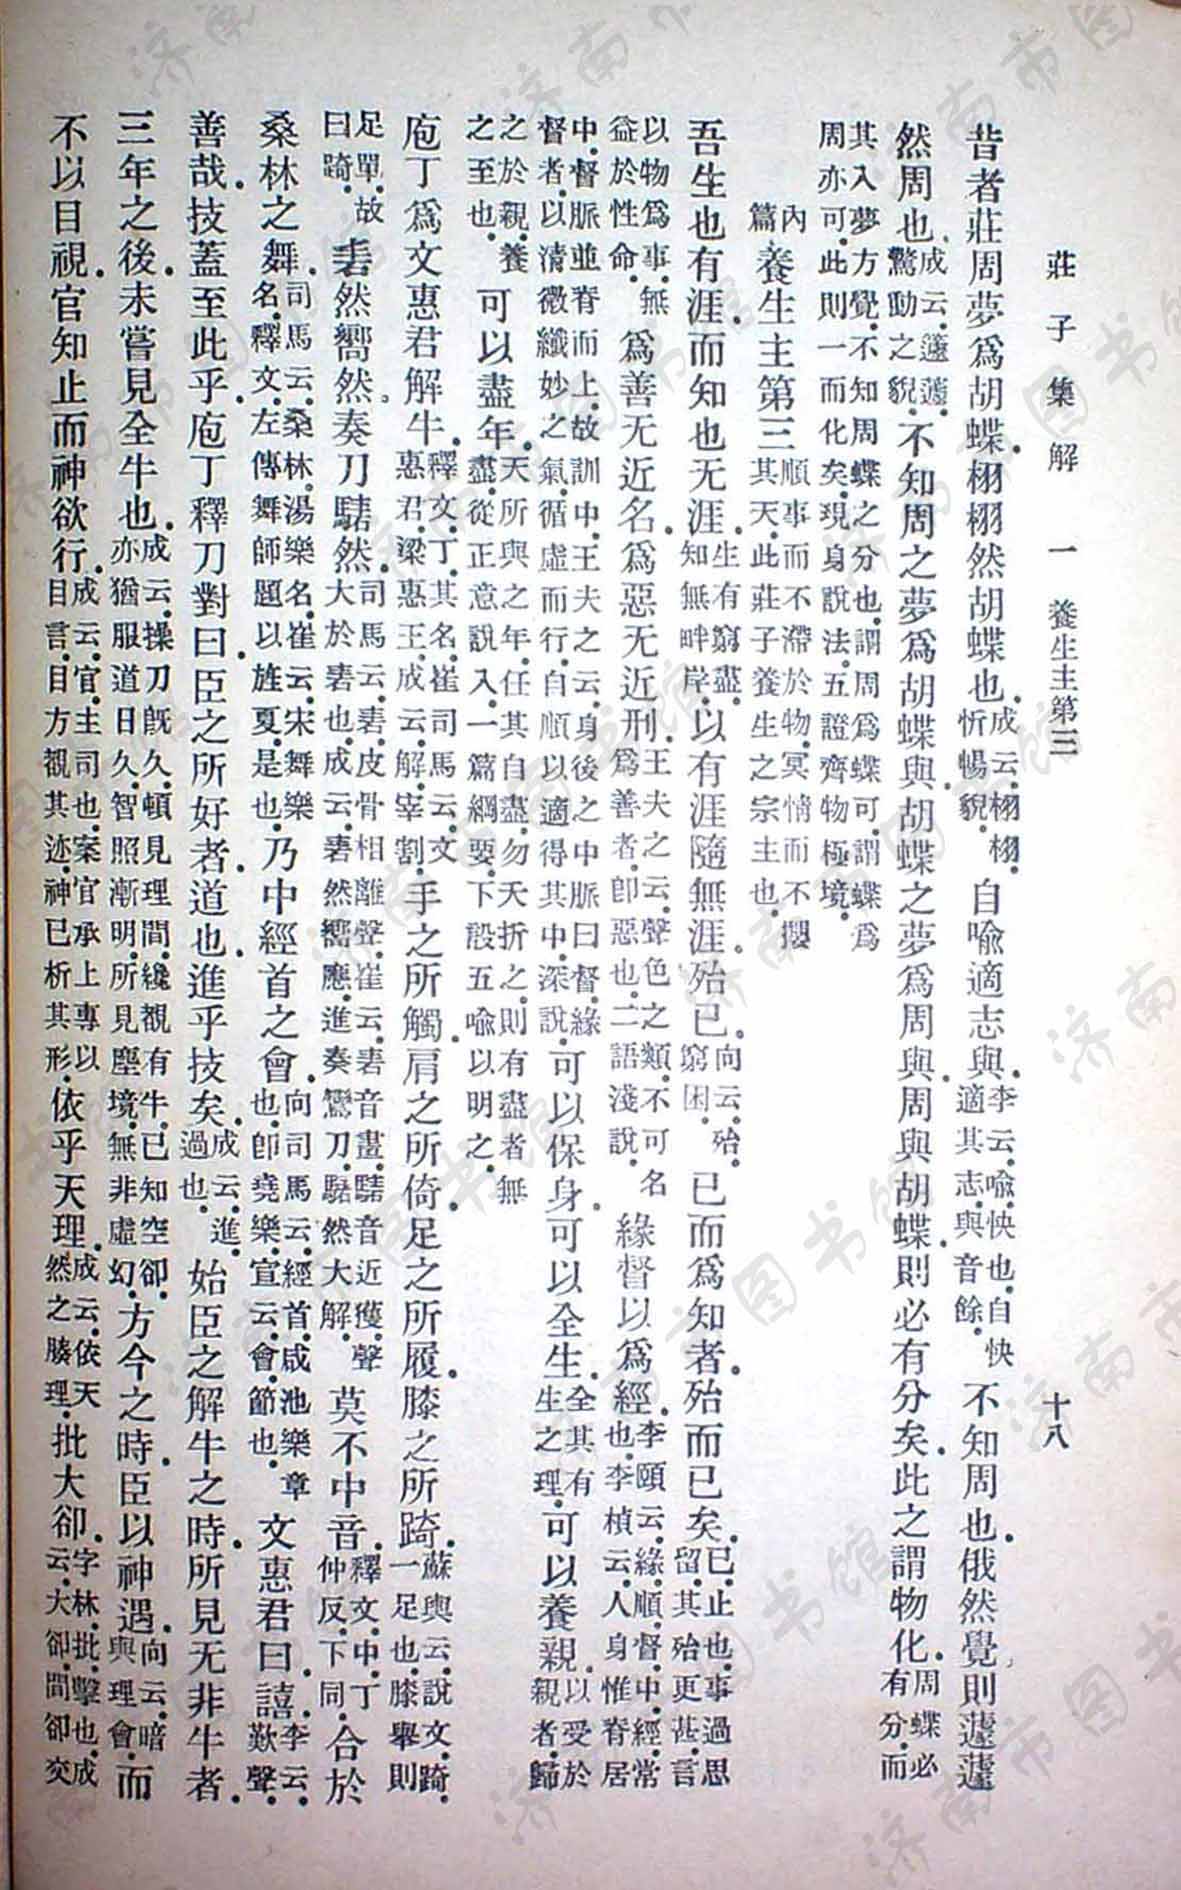 莊子集解　一　養生主第三　十八
昔者莊周夢爲胡蝶.栩栩然胡蝶也.成云.栩栩.忻暢貌.自喻適志與.李云.喻.快也.自快適其志.與音餘.不知周也.俄然覺.則蘧蘧
然周也.成云.蘧蘧.驚動之貌.不知周之夢爲胡蝶與.胡蝶之夢爲周與.周與胡蝶.則必有分矣.此之謂物化.周蝶必有分.而
其入夢方覺.不知周蝶之分也.謂周爲蝶可.謂蝶爲周亦可.此則一而化矣.現身說法.五證齊物極境.
內篇養生主第三順事而不滯於物.冥情而不攖其天.此莊子養生之宗主也.
吾生也有涯.而知也无涯.生有窮盡.知無畔岸.以有涯隨無涯.殆已.向云.殆.窮困.已而爲知者.殆而已矣.已.止也.事過思留.其殆更甚.言
以物爲事.無益於性命.爲善无近名.爲惡无近刑.王夫之云.聲色之類.不可名爲善者.卽惡也.二語淺說.緣督以爲經.李頤云.緣.順.督.中.經.常也.李楨云.人身惟脊居
中.督脈並脊而上.故訓中.王夫之云.身後之中脈曰督.緣督者.以清微纖妙之氣.循虛而行.自順以適得其中.深說.可以保身.可以全生.全其有生之理.可以養親.以受於親者.歸
之於親.養之至也.可以盡年.天所與之年.任其自盡.勿夭折之.則有盡者無盡.從正意說入.一篇綱要.下設五喻以明之.
庖丁爲文惠君解牛.釋文.丁其名.崔司馬云.文惠君.梁惠王.成云.解.宰割.手之所觸.肩之所倚.足之所履.膝之所踦.蘇輿云.說文.踦.一足也.膝舉則
足單.故曰踦.砉然嚮然.奏刀騞然.司馬云.砉.皮骨相離聲.崔云.砉音畫.騞音近獲.聲大於砉也.成云.砉然嚮應.進奏鸞刀.騞然大解.莫不中音.釋文.中.丁仲反.下同.合於
桑林之舞.司馬云.桑林.湯樂名.崔云.宋舞樂名.釋文.左傳舞師題以旌夏是也.乃中經首之會.向司馬云.經首.咸池樂章也.卽堯樂.宣云.會.節也.文惠君曰.譆.李云.歎聲.
善哉.技蓋至此乎.庖丁釋刀對曰.臣之所好者.道也.進乎技矣.成云.進.過也.始臣之解牛之時.所見无非牛者.
三年之後.未嘗見全牛也.成云.操刀旣久.頓見理間.纔覩有牛.已知空卻.亦猶服道日久.智照漸明.所見塵境.無非虛幻.方今之時.臣以神遇.向云.暗與理會.而
不以目視.官知止而神欲行.成云.官.主司也.案官承上專以目言.目方觀其迹.神已析其形.依乎天理.成云.依天然之腠理.批大卻.字林.批.擊也.成云.大卻.間卻交
济南市图书馆